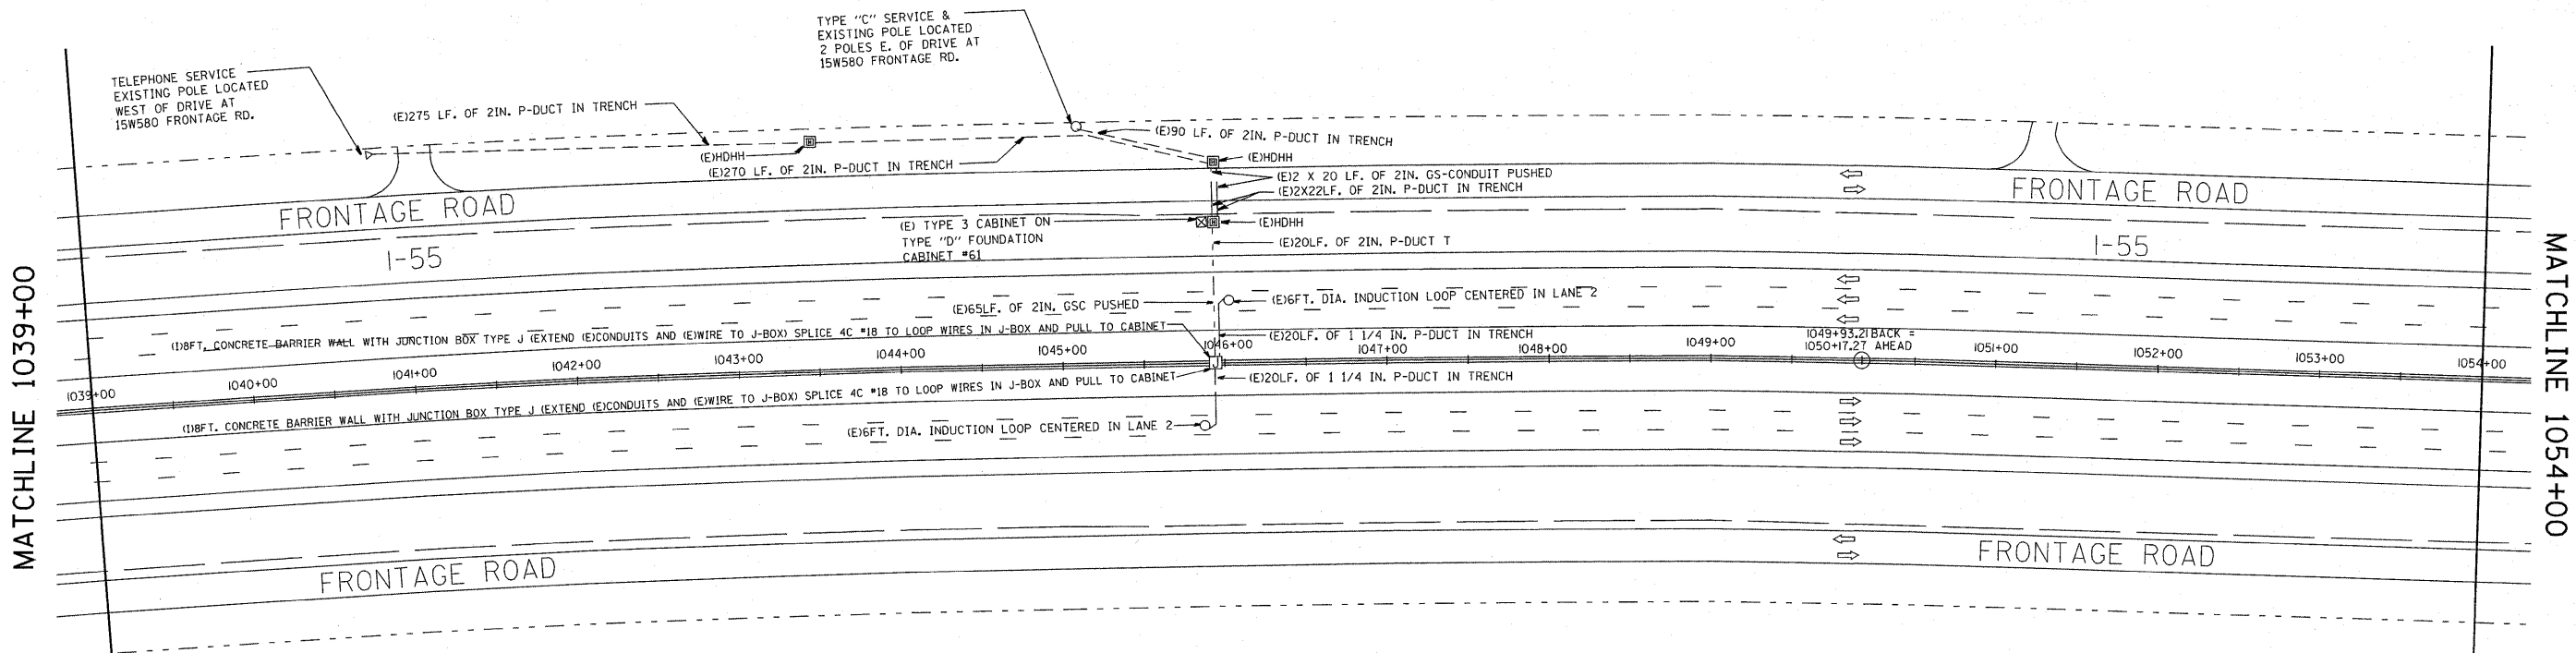 TYPE "C" SERVICE &
EXISTING POLE LOCATED
2 POLES E. OF DRIVE AT
15W580 FRONTAGE RD.
TELEPHONE SERVICE
EXISTING POLE LOCATED
WEST OF DRIVE AT
15W580 FRONTAGE RD.
(E)275 LF. OF 2IN. P-DUCT IN TRENCH
(E)90 LF. OF 2IN. P-DUCT IN TRENCH
(E)HDHH
(E)HDHH
(E)270 LF. OF 2IN. P-DUCT IN TRENCH
(E)2 X 20 LF. OF 2IN. GS-CONDUIT PUSHED
(E)2X22LF. OF 2IN. P-DUCT IN TRENCH
FRONTAGE ROAD
FRONTAGE ROAD
(E) TYPE 3 CABINET ON
TYPE "D" FOUNDATION
CABINET #61
(E)HDHH
(E)20LF. OF 2IN. P-DUCT T
I-55
I-55
(E)65LF. OF 2IN. GSC PUSHED
(E)6FT. DIA. INDUCTION LOOP CENTERED IN LANE 2
(I)8FT. CONCRETE BARRIER WALL WITH JUNCTION BOX TYPE J (EXTEND (E)CONDUITS AND (E)WIRE TO J-BOX) SPLICE 4C #18 TO LOOP WIRES IN J-BOX AND PULL TO CABINET
(E)20LF. OF 1 1/4 IN. P-DUCT IN TRENCH
1049+93.21 BACK =
1050+17.27 AHEAD
1039+00
1040+00
1041+00
1042+00
1043+00
1044+00
1045+00
1046+00
1047+00
1048+00
1049+00
1051+00
1052+00
1053+00
1054+00
(E)20LF. OF 1 1/4 IN. P-DUCT IN TRENCH
(I)8FT. CONCRETE BARRIER WALL WITH JUNCTION BOX TYPE J (EXTEND (E)CONDUITS AND (E)WIRE TO J-BOX) SPLICE 4C #18 TO LOOP WIRES IN J-BOX AND PULL TO CABINET
(E)6FT. DIA. INDUCTION LOOP CENTERED IN LANE 2
FRONTAGE ROAD
FRONTAGE ROAD
MATCHLINE 1039+00
MATCHLINE 1054+00